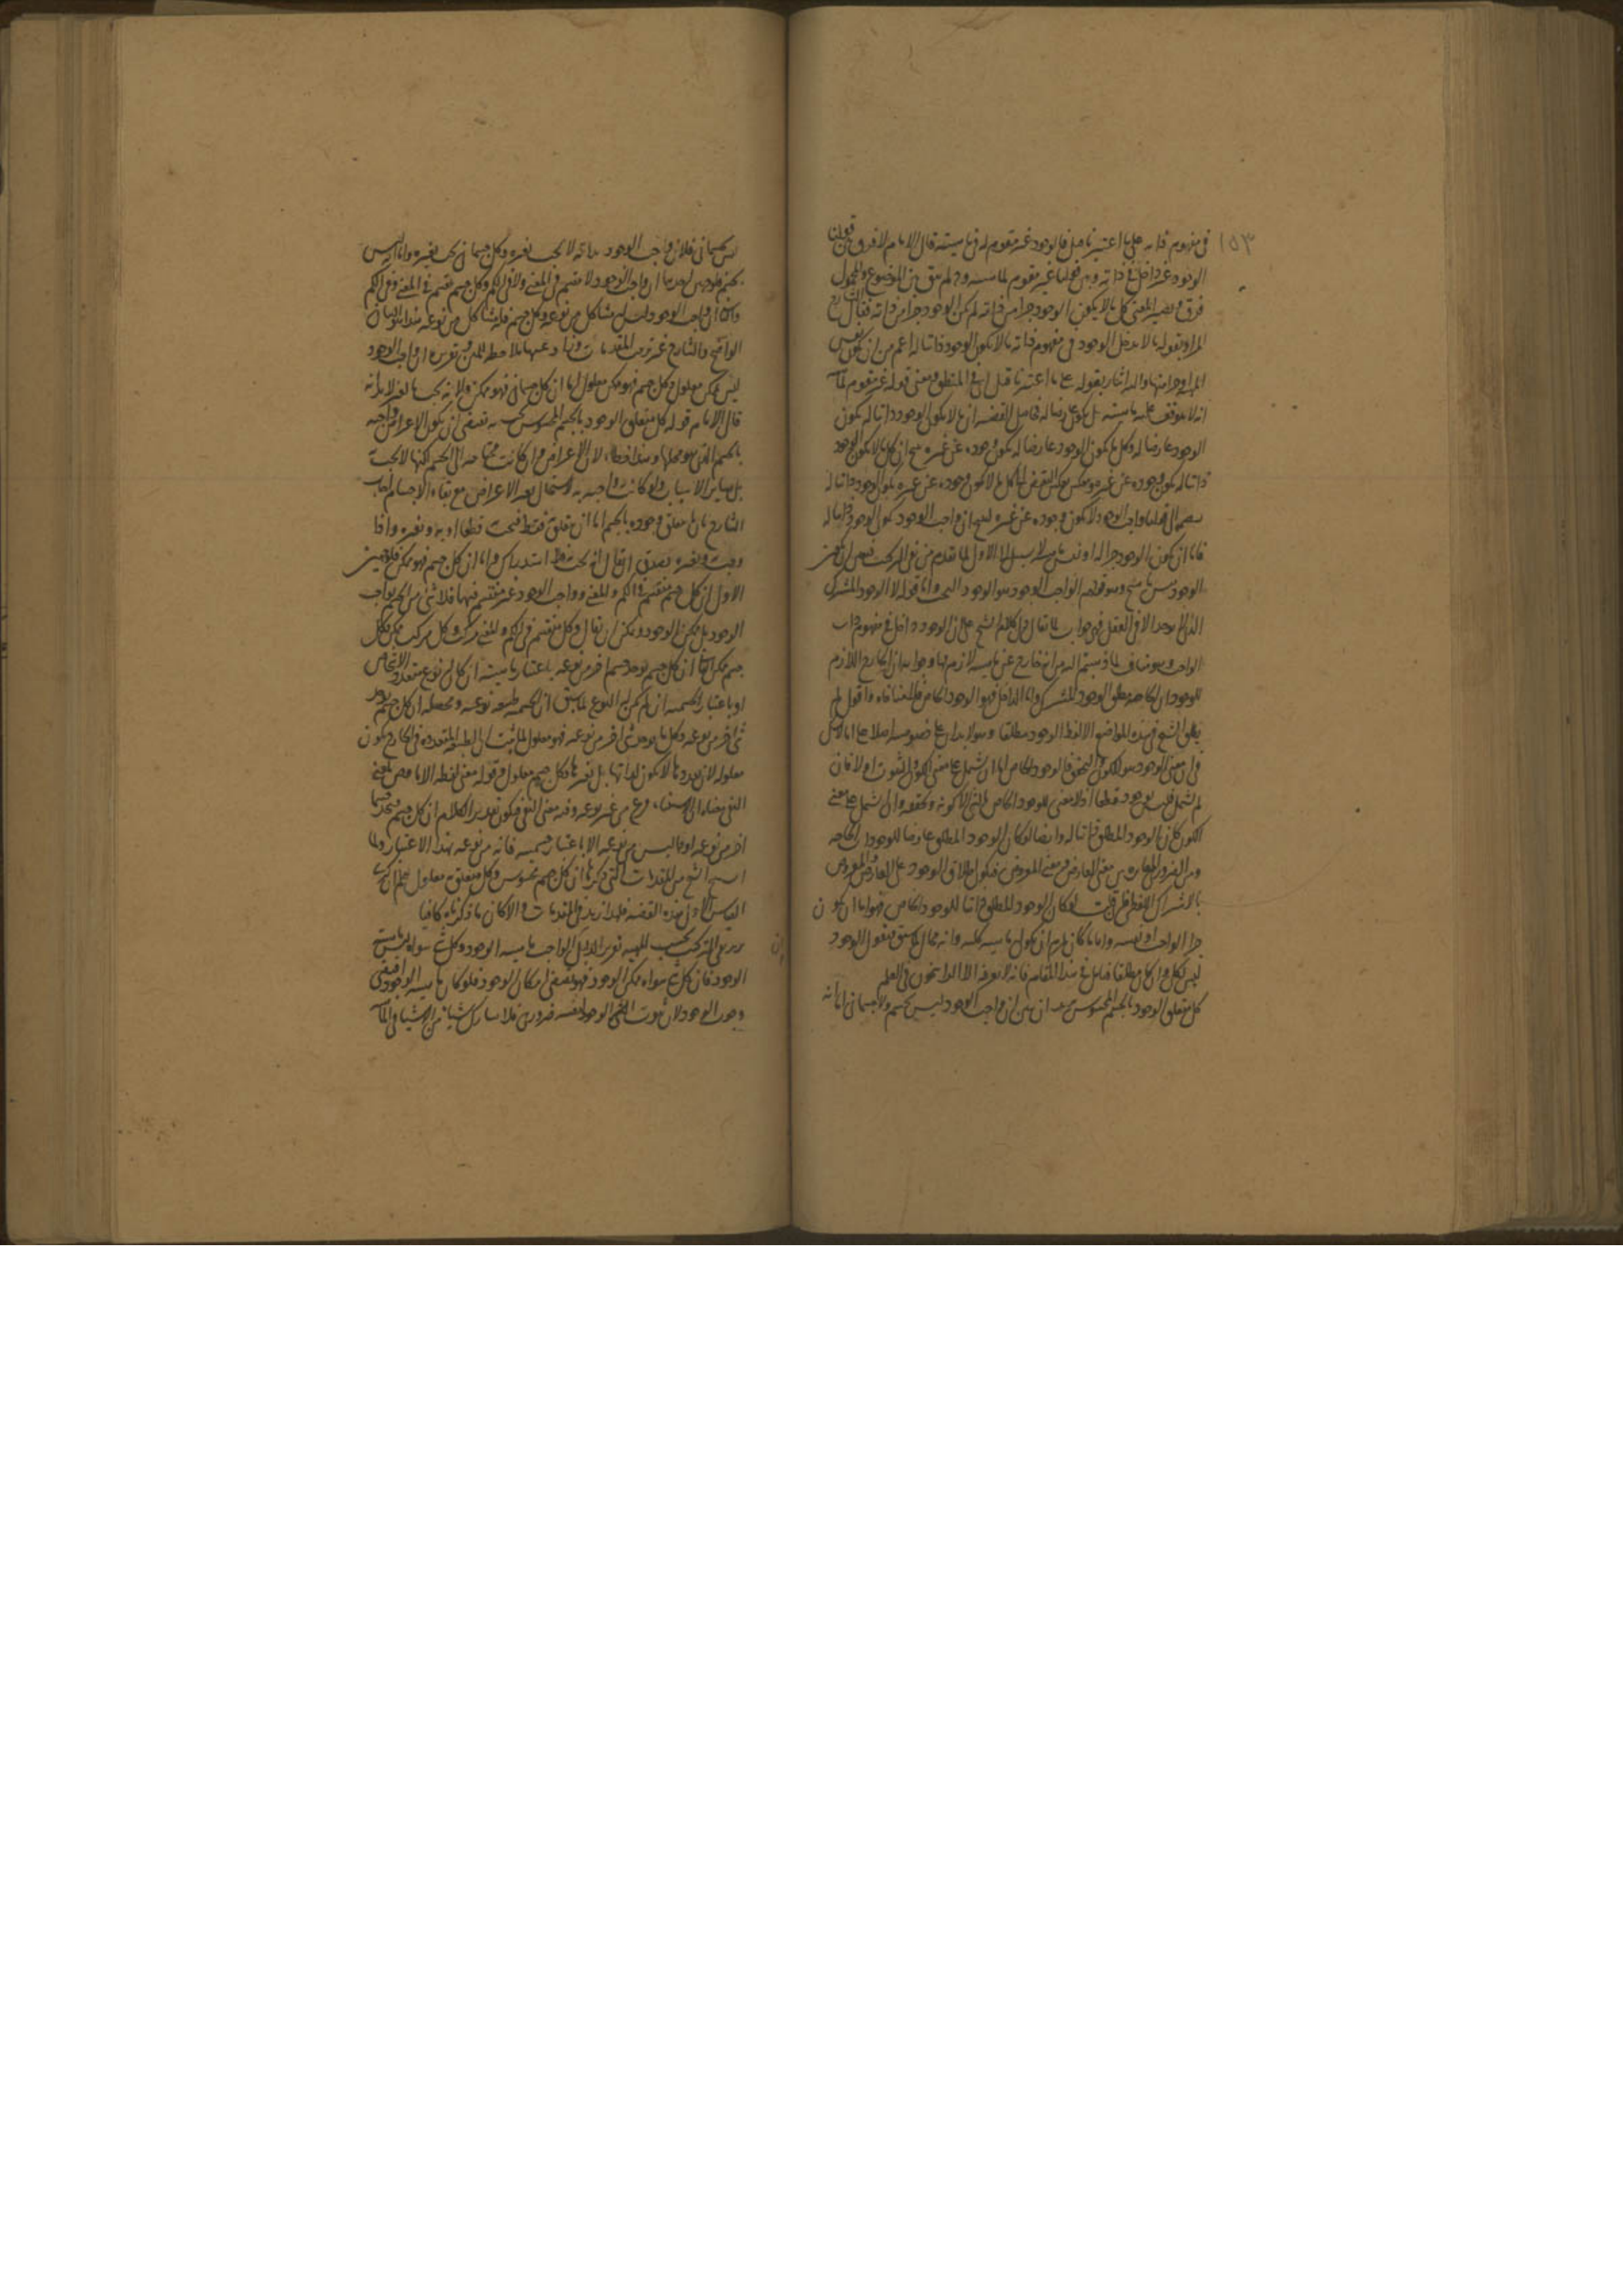 ١٥٣
في مفهوم ذاته على ما اعتبرنا قبل فالوجود غير مقوم له في ماهيته قال الامام لا فرق بين قولنا
الوجود غير داخل في ذاته وبين قولنا غير مقوم لماهيته و لم يبق بين الموضوع والمحمول
فرق ويصير المعنى كل ما لا يكون الوجود جزا من ذاته لم يكن الوجود جزا من ذاته فقال الشارح
المراد بقوله ما لا يدخل الوجود في مفهوم ذاته ما لا يكون الوجود ذاتيا له اعم من ان يكون نفس
الماهية او جزا منها واليه اشار بقوله على ما اعتبرنا قبل اي في المنطق ومعنى قوله غير مقوم
انه لا يتوقف عليه ماهيته بل يكون عارضا له فحاصل القضية ان ما لا يكون الوجود ذاتيا له يكون
الوجود عارضا له وكل ما يكون الوجود عارضا له يكون وجوده عن غيره ينتج ان كل ما لا يكون الوجود
ذاتيا له يكون وجوده عن غيره وينعكس بعكس النقيض الى كل ما لا يكون وجوده عن غيره يكون الوجود ذاتيا له
الى قولنا واجب الوجود لا يكون وجوده عن غيره لينتج ان واجب الوجود يكون الوجود ذاتيا له
فاما ان يكون الوجود جزا له او نفس ماهيته لا سبيل الى الاول لما تقدم من نفي التركيب فتعين ان
الوجود وهو قولهم الواجب الوجود هو الوجود البحت واما قوله الا الوجود المشترك
الذي لا يوجد الا في العقل فهو جواب لما يقال ان كلام الشيخ على ان الوجود داخل في مفهوم ذات
الواجب وهو مناف لما ذهبتم اليه من انه خارج عن ماهيته لازم لها وجوابه ان الخارج اللازم
للوجودات الخاصة مطلق الوجود المشترك واما الداخل فهو الوجود الخاص فلا منافاة واقول لم
يطلق الشيخ في هذه المواضع الا لفظ الوجود مطلقا وهو لا يدل على خصوصه اصلا على انا لا نشك
في ان معنى الوجود هو الكون والتحقق فالوجود الخاص اما ان يشتمل على معنى الكون والثبوت اولا فان
لم يشتمل فليس بوجود قطعا اذ لا معنى للوجود الخاص بالشيء الا كونه وتحققه وان اشتمل على معنى
الكون كان الوجود المطلق ذاتيا له وايضا لو كان الوجود المطلق عارضا للوجودات الخاصة
ومن الضرورة المغايرة بين معنى العارض ومعنى المعروض فيكون اطلاق الوجود على العارض والمعروض
بالاشتراك اللفظي فلو كان الوجود المطلق ذاتيا للوجود الخاص فهو اما ان يكون
جزا الواجب او نفسه واياما كان يلزم ان يكون ماهيته كلية وانه محال لما سبق فنقول الوجود
ليس بكلي وان كان مطلقا فتامل في هذا المقام فانه لا يعرفه الا الراسخون في العلم
كل متعلق الوجود بالجسم المحسوس يريد ان يبين ان واجب الوجود ليس بجسم ولا جسماني اما انه
ليس بجسماني فلان واجب الوجود بذاته لا يجب بغيره وكل جسماني يجب بغيره واما انه ليس
بجسم فلوجهين احدهما ان واجب الوجود لا ينقسم في المعنى ولا في الكم وكل جسم ينقسم في المعنى وفي الكم
والثاني ان واجب الوجود ليس له مشاكل من نوعه وكل جسم فله مشاكل من نوعه هذا هو البيان
الواضح والشارح غير ترتيب المقدمات وزاد عليها ملاحظة للمتن وتقريره ان واجب الوجود
ليس بممكن معلول وكل جسم فهو ممكن معلول اما ان كل جسماني فهو ممكن فلانه يجب بالغير لا بذاته
قال الامام قوله كل متعلق الوجود بالجسم المحسوس يجب به يقتضي ان يكون الاعراض واجبة
بالجسم الذي هو محلها وهذا خطا لان الاعراض وان كانت محتاجة الى الجسم لكنها لا تجب به
بل بسائر الاسباب ولو كانت واجبة به لاستحال تغير الاعراض مع بقاء الاجسام اجاب
الشارح بان ما يتعلق وجوده بالجسم اما ان يتعلق به فقط فيجب قطعا او به وبغيره واذا
وجب به وبغيره يصدق ان يقال انه يجب به واما ان كل جسم فهو ممكن فلوجهين
الاول ان كل جسم منقسم في الكم والمعنى وواجب الوجود غير منقسم فيها فلا شيء من الجسم بواجب
الوجود بل ممكن الوجود ويمكن ان يقال وكل منقسم في الكم والمعنى مركب وكل مركب ممكن فكل
جسم ممكن الثاني ان كل جسم يوجد جسم اخر من نوعه باعتبار ماهيته ان كان له نوع متعدد الاشخاص
او باعتبار الجسمية ان لم يكن له النوع لما سبق ان الجسمية طبيعة نوعية ومحصله ان كل جسم يوجد
شيء اخر من نوعه وكل ما يوجد شيء اخر من نوعه فهو معلول لما ثبت ان الطبيعة المتعددة في الخارج يكون
معلولة لان تعددها لا يكون لذاتها بل لغيرها فكل جسم معلول وقوله معنى لفظة الا ما هو من معنى
النفي من غير نوعه وفيه معنى النفي فيكون تقدير الكلام ان كل جسم فيجد جسما
اخر من نوعه او ما ليس من نوعه الا باعتبار جسميته فانه من نوعه بهذا الاعتبار ولما
انتج الشيخ من المقدمات التي ذكرها ان كل جسم محسوس وكل متعلق به معلول
القياس الاول هذه القضية فلهذا زيد في المقدمات والا كان ما ذكرناه كافيا
يريد نفي التركيب بحسب الماهية تقرير الدليل ان الواجب ماهيته الوجود وكل شيء سواه ليس ماهيته
الوجود فان كل شيء سواه ممكن الوجود فهو يقتضي امكان الوجود فلو كان ماهيته الوجود اقتضى
وجوب الوجود لان ثبوت الشيء لنفسه ضروري فلا يشارك شيئا من الاشياء في